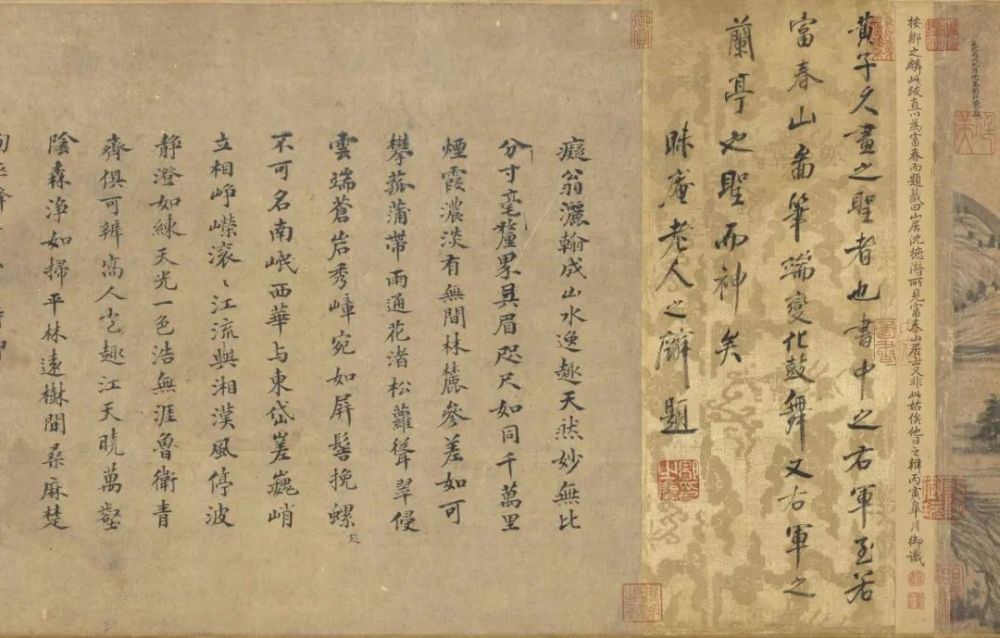 按鄒之麟此跋直以為富春而題籤曰山居沈德潛所見富春山居又非此姑俟他日之辨丙寅皋月御識
黃子久畫之聖者也書中之右軍至若
富春山啚筆端變化鼓舞又右軍之
蘭亭也聖而神矣
昧庵老人之麟題
癡翁灑翰成山水逸趣天然妙無比
分寸毫釐累具眉咫尺如同千萬里
煙霞濃淡有無間林麓參差如可
攀菰蒲帶雨通花渚松蘿聳翠侵
雲端蒼岩秀嶂宛如屏髻挽螺
不可名南岷西華与東岱嵳巍峭
立相崢嶸滾〻江流與湘漢風停波
靜澄如練天光一色浩無涯魯衛青
齊俱可辨高人趣江天曉萬壑
陰森淨如掃平林遠樹間桑麻楚